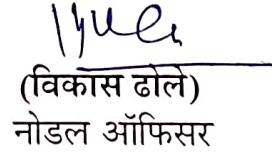 (विकास ढोले)
नोडल ऑफिसर